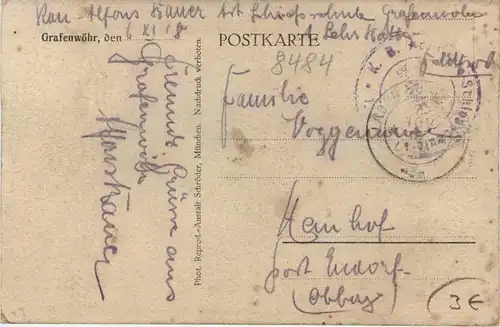 Kan. Alfons Bauer Art. Schiessschule Grafenwöhr
Grafenwöhr, den 6 XI. 18
Lehr Batt.
Nachdruck verboten.
POSTKARTE
8484
Feldpost
K. B.
Freundl. Grüsse aus
Grafenwöhr
Alfons Bauer
Phot. Reprod.-Anstalt Schröder, München.
Familie
Hemhof
Post Endorf
(Obbay)
3€